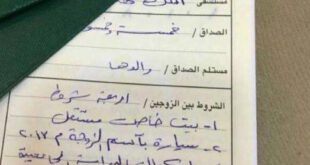 الصداق / خمسة وخمسو
مستلم الصداق / والدها
الشروط بين الزوجين / اربعة شروط
١- بيت خاص مستقل
٢- سيارة بأسم الزوجة م ٢٠١٧